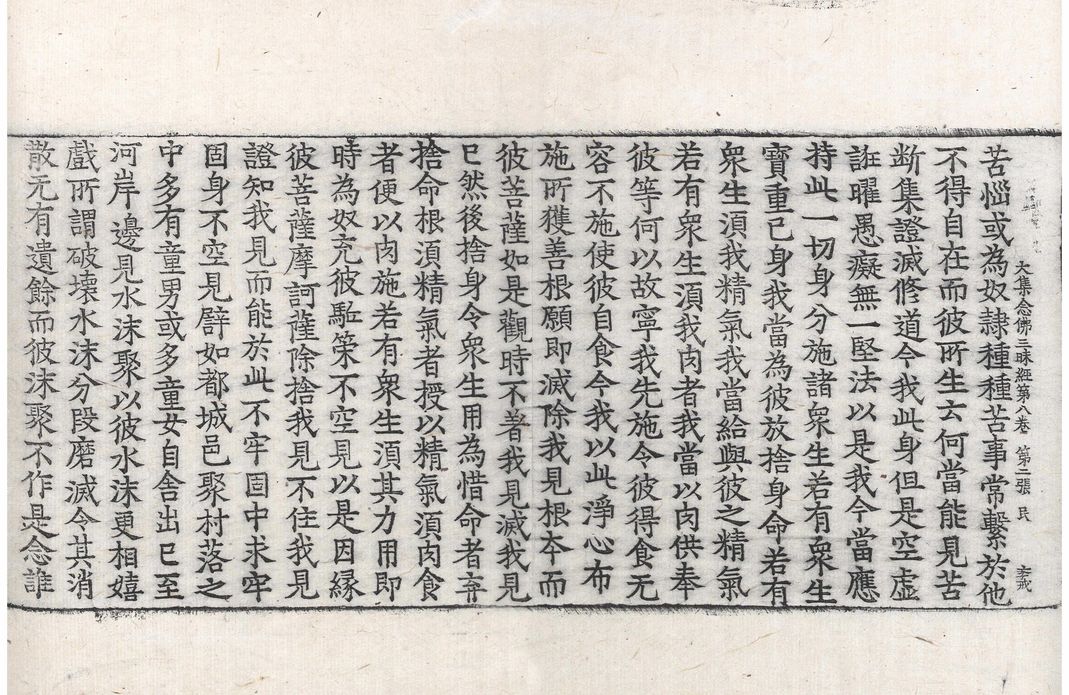 大集念佛三昧經第八卷 第二張 民 玄戒
苦惱或為奴隸種種苦事常繫於他
不得自在而彼所生云何當能見苦
断集證滅修道今我此身但是空虚
誑曜愚癡無一堅法以是我今當應
持此一切身分施諸衆生若有衆生
寶重己身我當為彼放捨身命若有
衆生湏我精氣我當給與彼之精氣
若有衆生湏我肉者我當以肉供奉
彼等何以故寧我先施令彼得食无
容不施使彼自食今我以此淨心布
施所獲善根願即滅除我見根夲而
彼菩薩如是觀時不著我見滅我見
已然後捨身令衆生用為惜命者弃
捨命根湏精氣者授以精氣湏肉食
者便以肉施若有衆生湏其力用即
時為奴充彼駈策不空見以是因縁
彼菩薩摩訶薩除捨我見不住我見
證知我見而能於此不牢固中求牢
固身不空見譬如都城邑聚村落之
中多有童男或多童女自舍出已至
河岸邊見水沫聚以彼水沫更相嬉
戲所謂破壞水沫分段磨滅令其消
散无有遺餘而彼沫聚不作是念誰